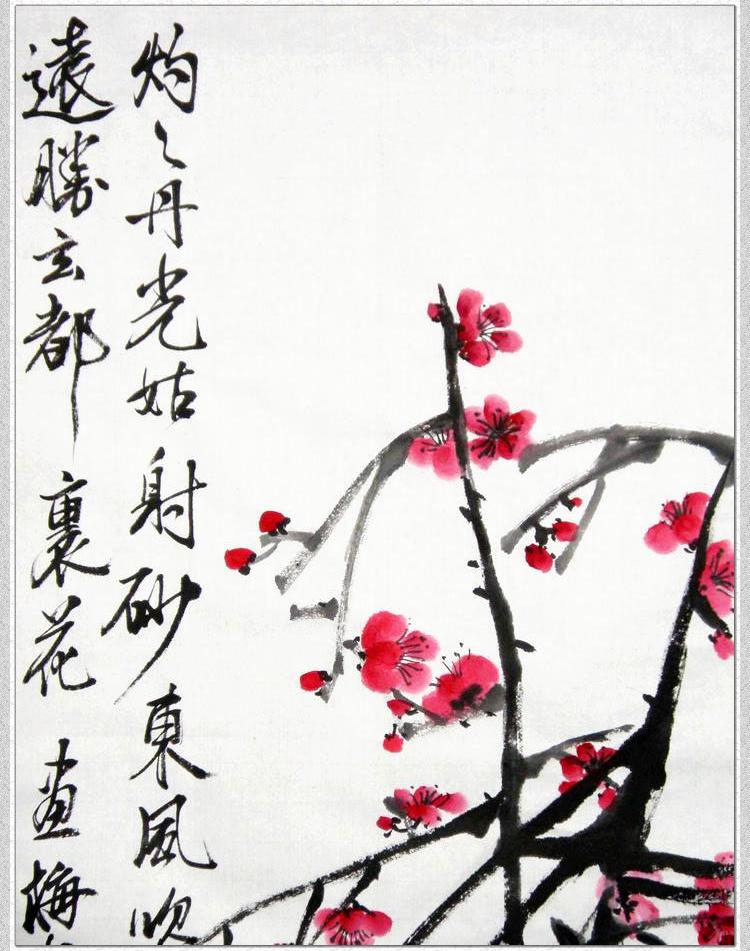 灼〻丹光姑射砂東風吹
遠勝玄都裏花 畫梅